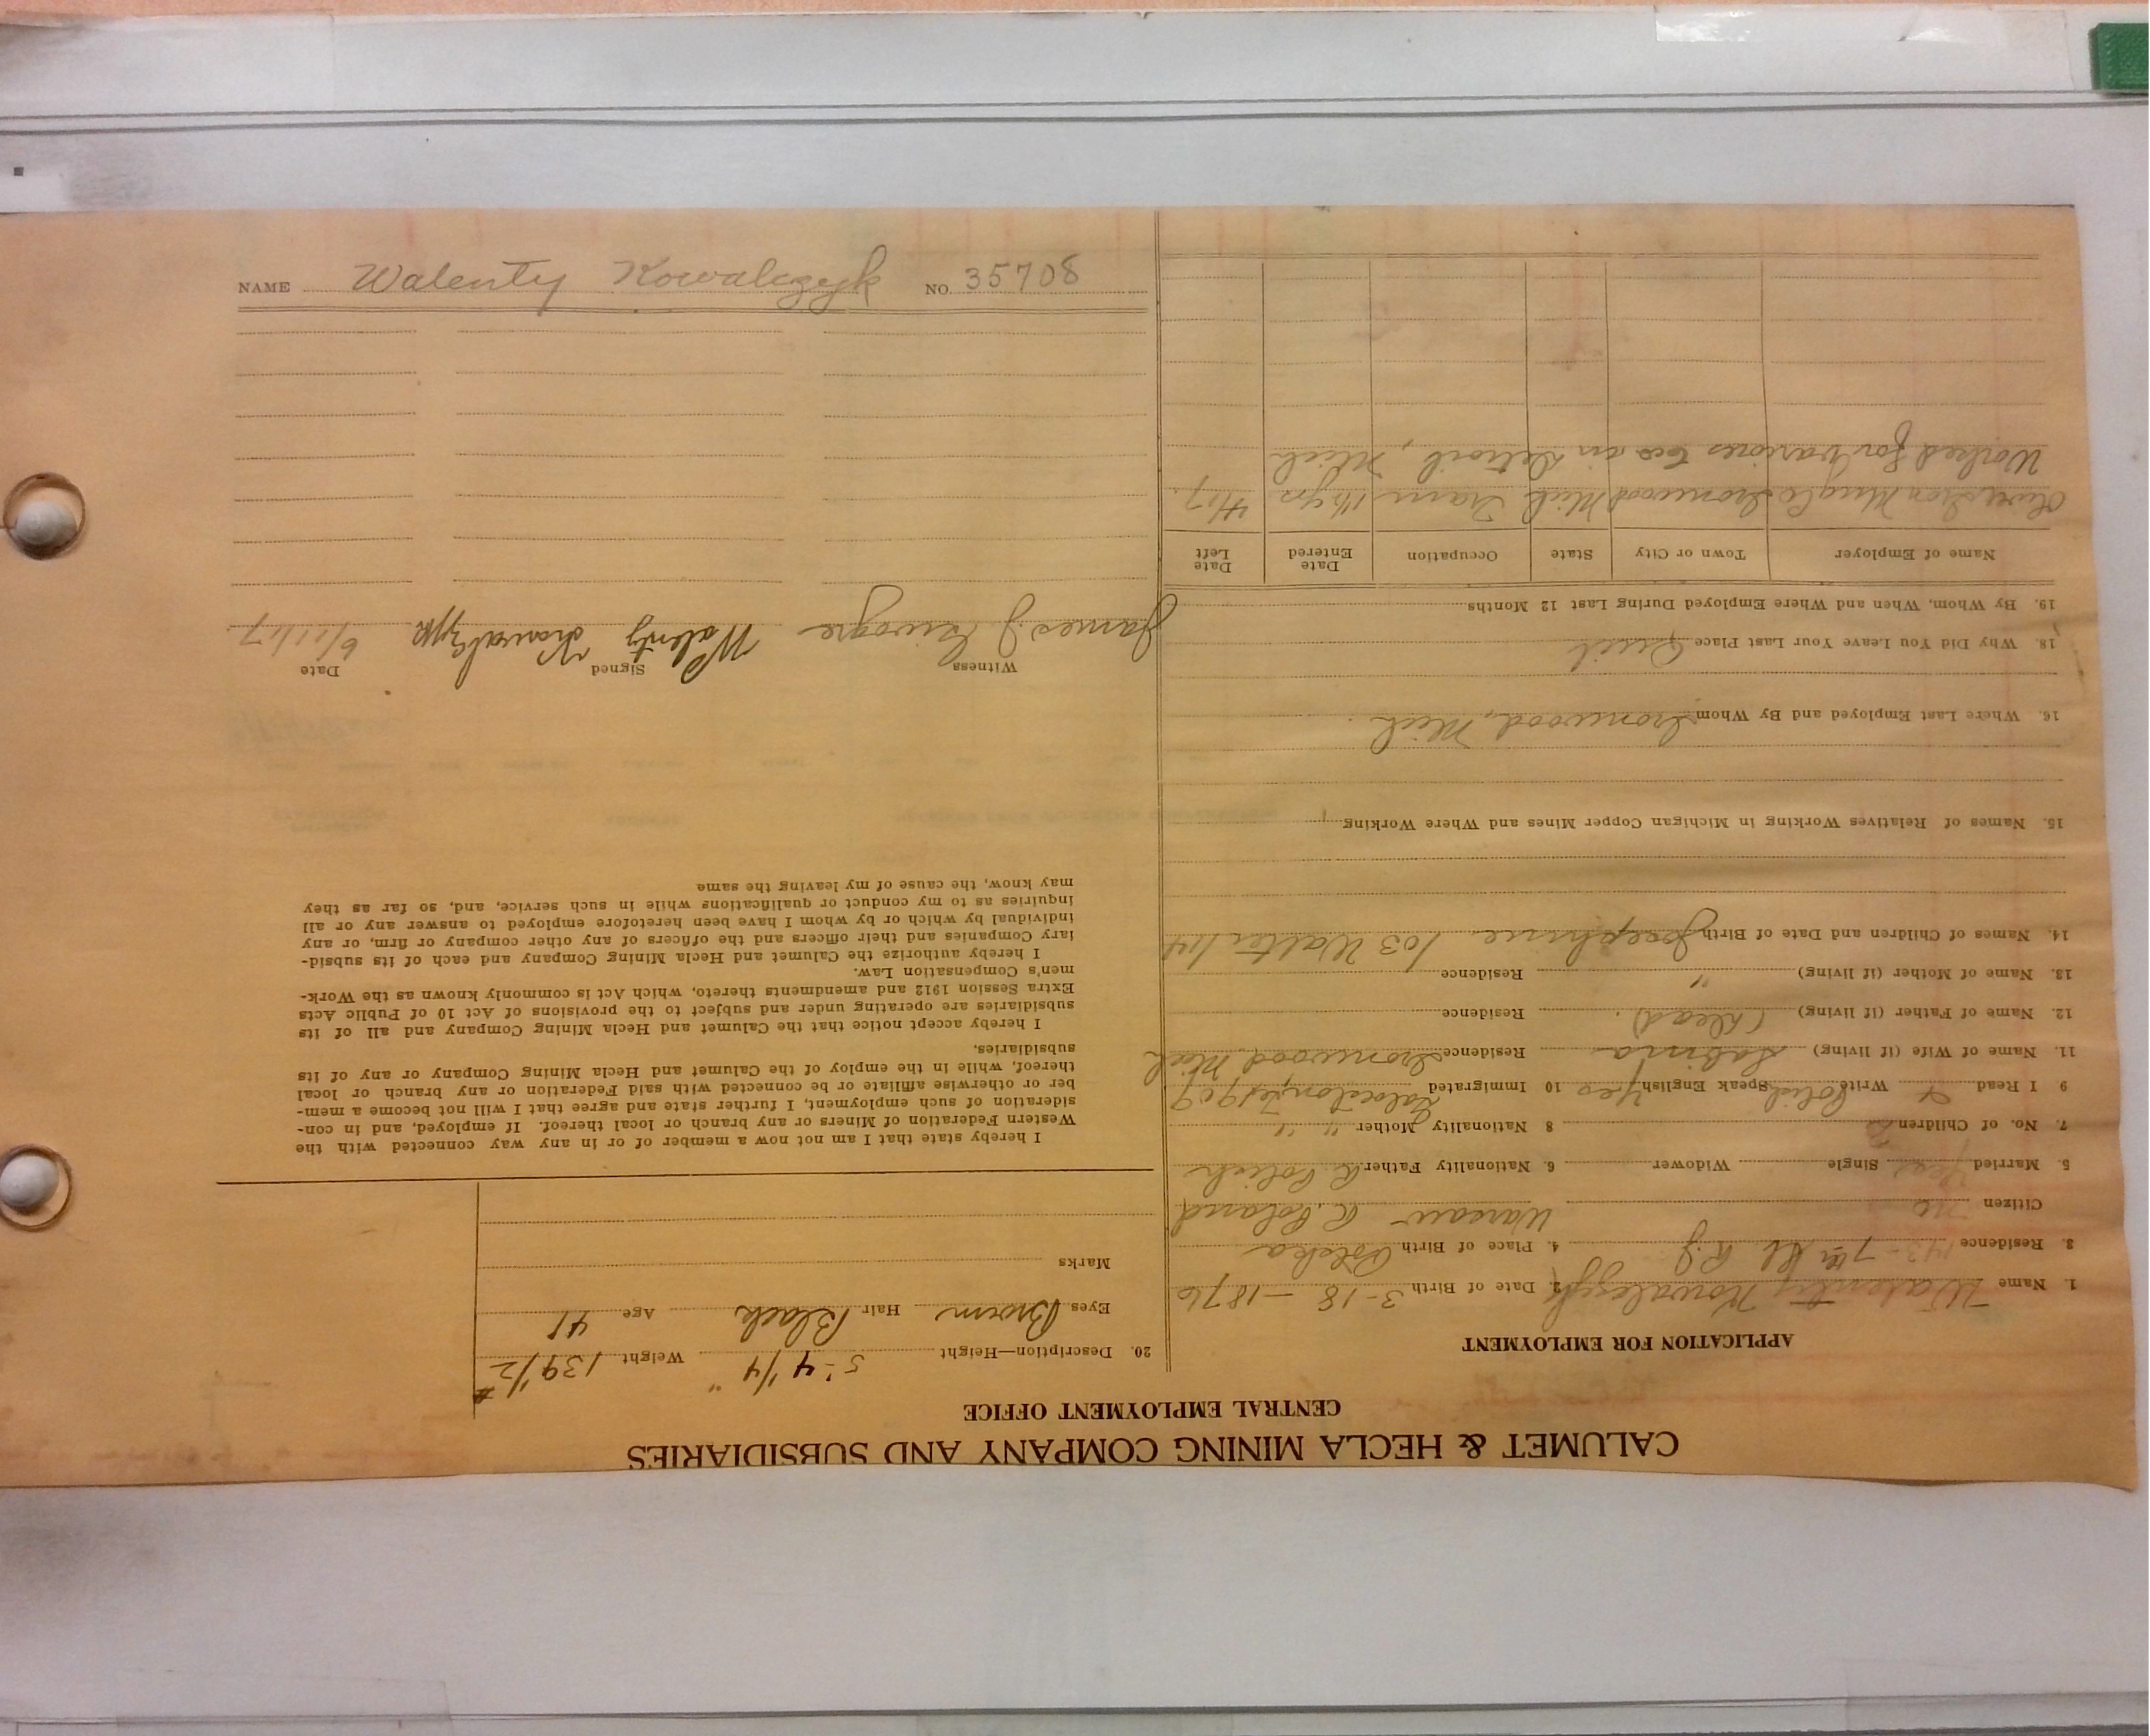 CALUMET & HECLA MINING COMPANY AND SUBSIDIARIES
CENTRAL EMPLOYMENT OFFICE
APPLICATION FOR EMPLOYMENT
1. Name Walenty Kowalczyk 2. Date of Birth 3-18-1876
3. Residence 143-7th St. R.J. 4. Place of Birth
Citizen no Warsaw R. Poland
5. Married Yes Single Widower 6. Nationality Father R. Polish
7. No. of Children 2 8 Nationality Mother " "
9 I Read & Write Polish Speak English Yes 10 Immigrated 1909
11. Name of Wife (if living) Residence Ironwood, Mich
12. Name of Father (if living) (dead) Residence
13. Name of Mother (if living) " Residence
14. Names of Children and Date of Birth Josephine 1/03 Walter 1/14
15. Names of Relatives Working in Michigan Copper Mines and Where Working
16. Where Last Employed and By Whom Ironwood, Mich
18. Why Did You Leave Your Last Place Quit
19. By Whom, When and Where Employed During Last 12 Months
Name of Employer Town or City State Occupation Date Entered Date Left
Oliver Iron Mng Co Ironwood Mich Tram 1½ yrs 4/17
Worked for various Cos in Detroit, Mich
20. Description—Height 5'-4 1/4" Weight 139 1/2 #
Eyes Brown Hair Black Age 41
Marks
I hereby state that I am not now a member of or in any way connected with the
Western Federation of Miners or any branch or local thereof. If employed, and in con-
sideration of such employment, I further state and agree that I will not become a mem-
ber or otherwise affiliate or be connected with said Federation or any branch or local
thereof, while in the employ of the Calumet and Hecla Mining Company or any of its
subsidiaries.
I hereby accept notice that the Calumet and Hecla Mining Company and all of its
subsidiaries are operating under and subject to the provisions of Act 10 of Public Acts
Extra Session 1912 and amendments thereto, which Act is commonly known as the Work-
men's Compensation Law.
I hereby authorize the Calumet and Hecla Mining Company and each of its subsid-
iary Companies and their officers and the officers of any other company or firm, or any
individual by which or by whom I have been heretofore employed to answer any or all
inquiries as to my conduct or qualifications while in such service, and, so far as they
may know, the cause of my leaving the same
Witness Signed Date
James J. Walenty Kowalczyk 6/11/17.
NAME Walenty Kowalczyk NO. 35708